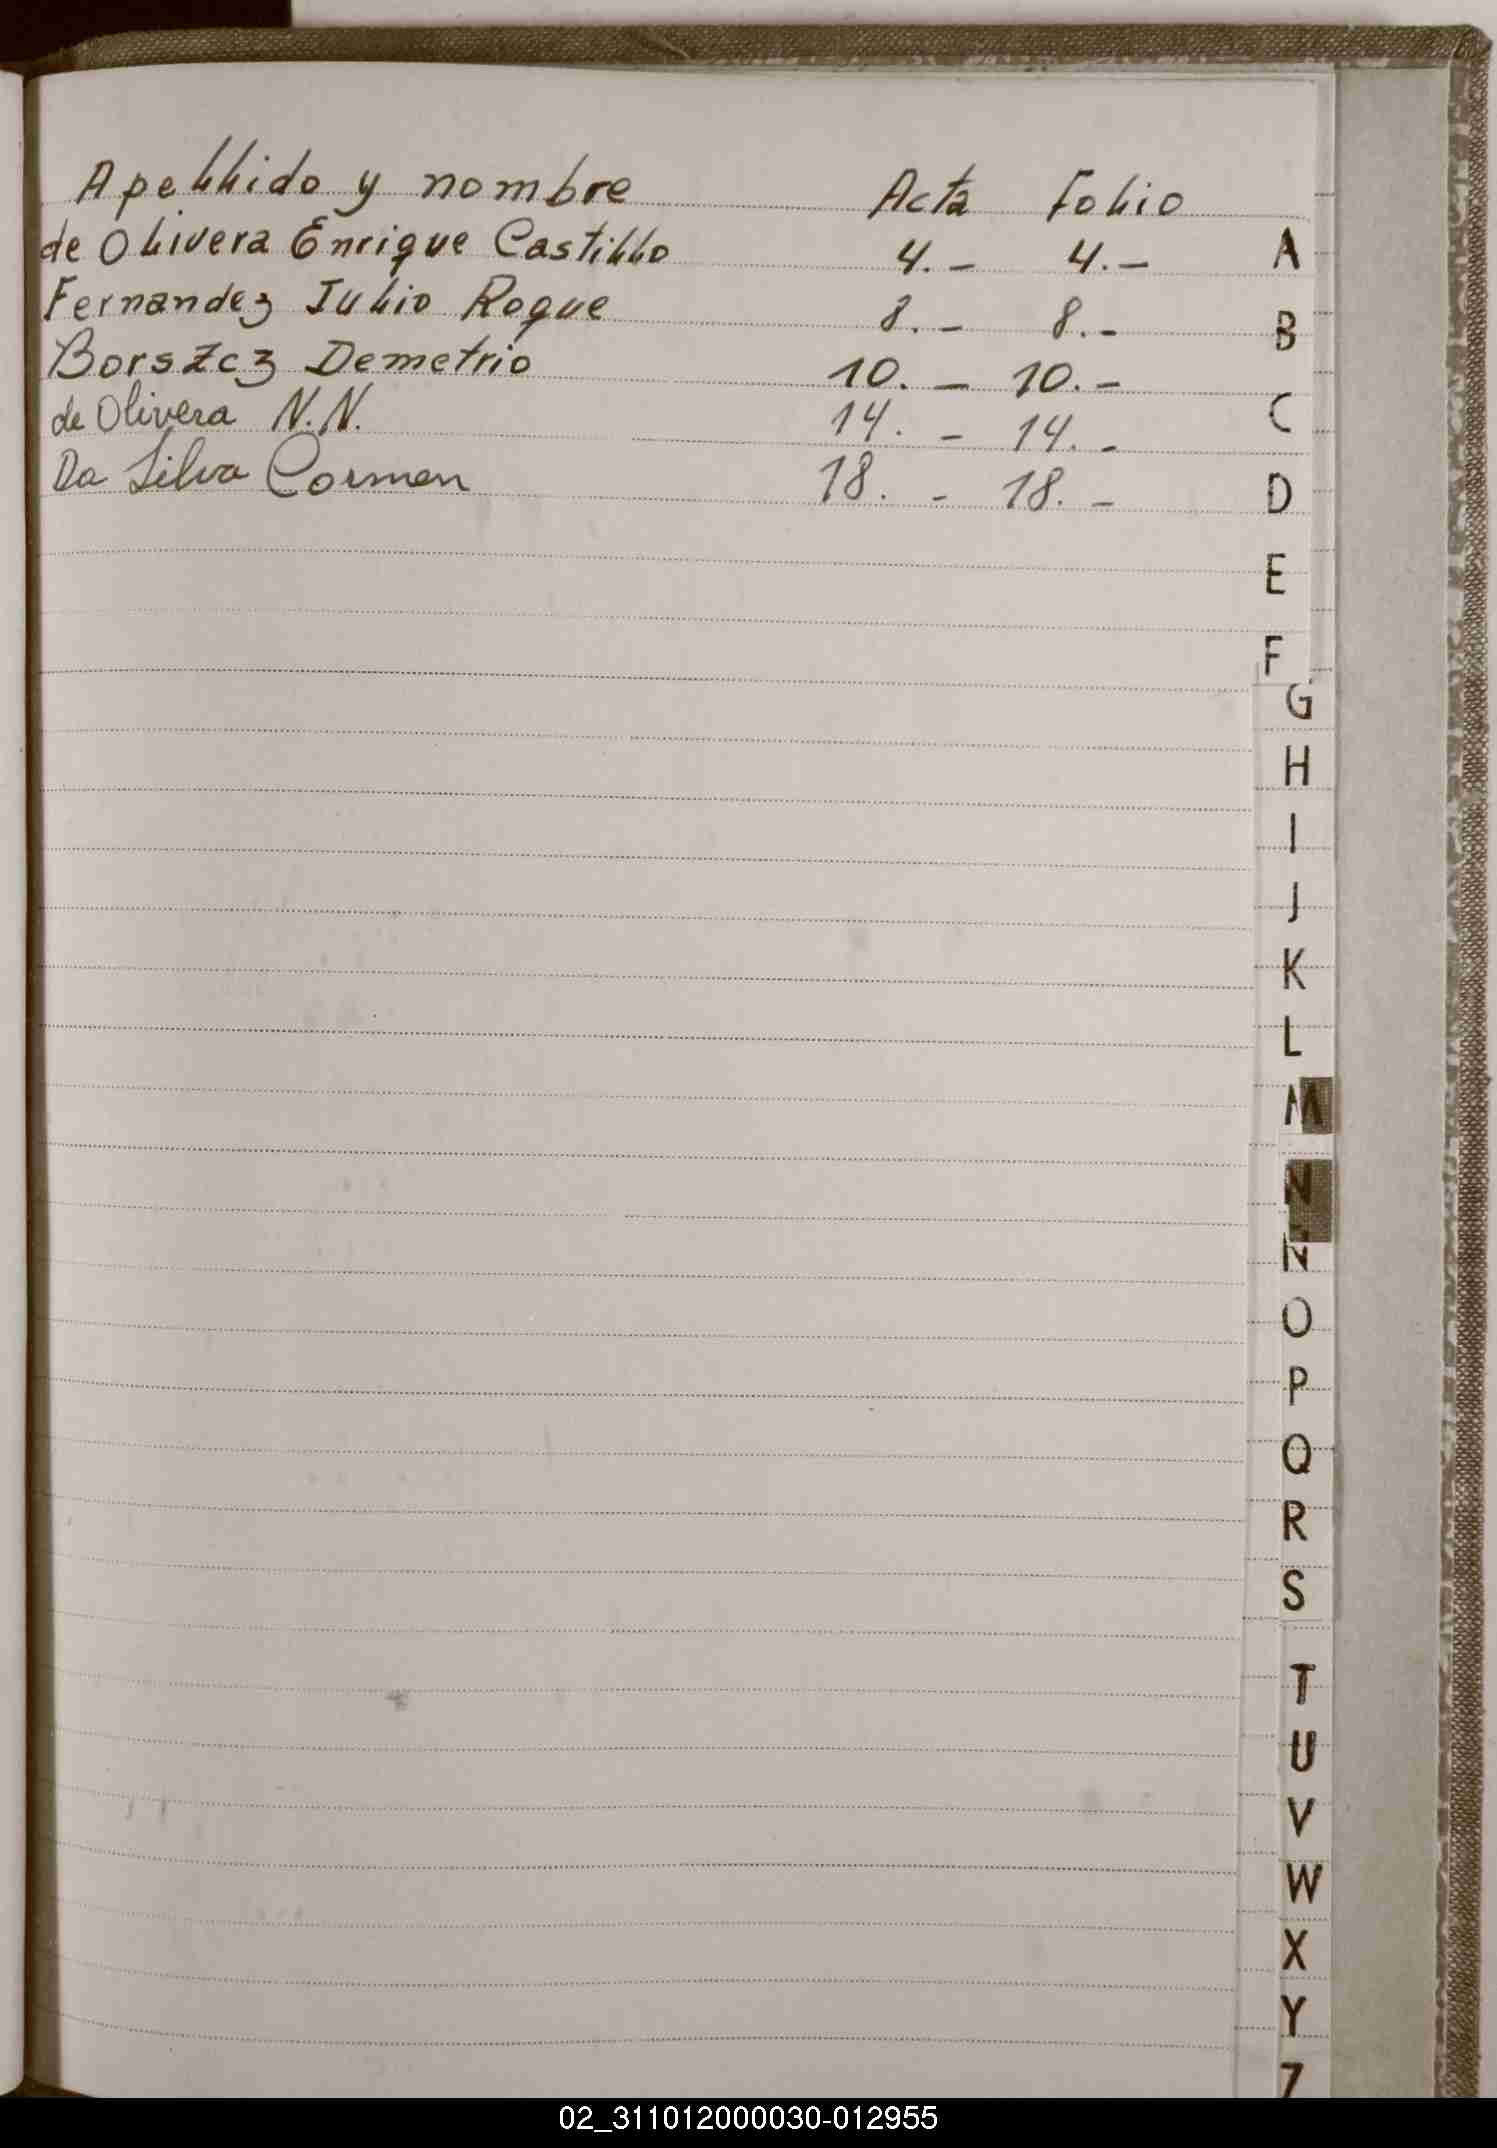 Apellido y nombre Acta Folio
de Olivera Enrique Castillo 4.- 4.-
Fernandez Julio Roque 8.- 8.-
Borszcz Demetrio 10.- 10.-
de Olivera N.N. 14.- 14.-
Da Silva Carmen 18.- 18.-
A
B
C
D
E
F
G
H
I
J
K
L
M
N
N
O
P
Q
R
S
T
U
V
W
X
Y
Z
02_311012000030-012955